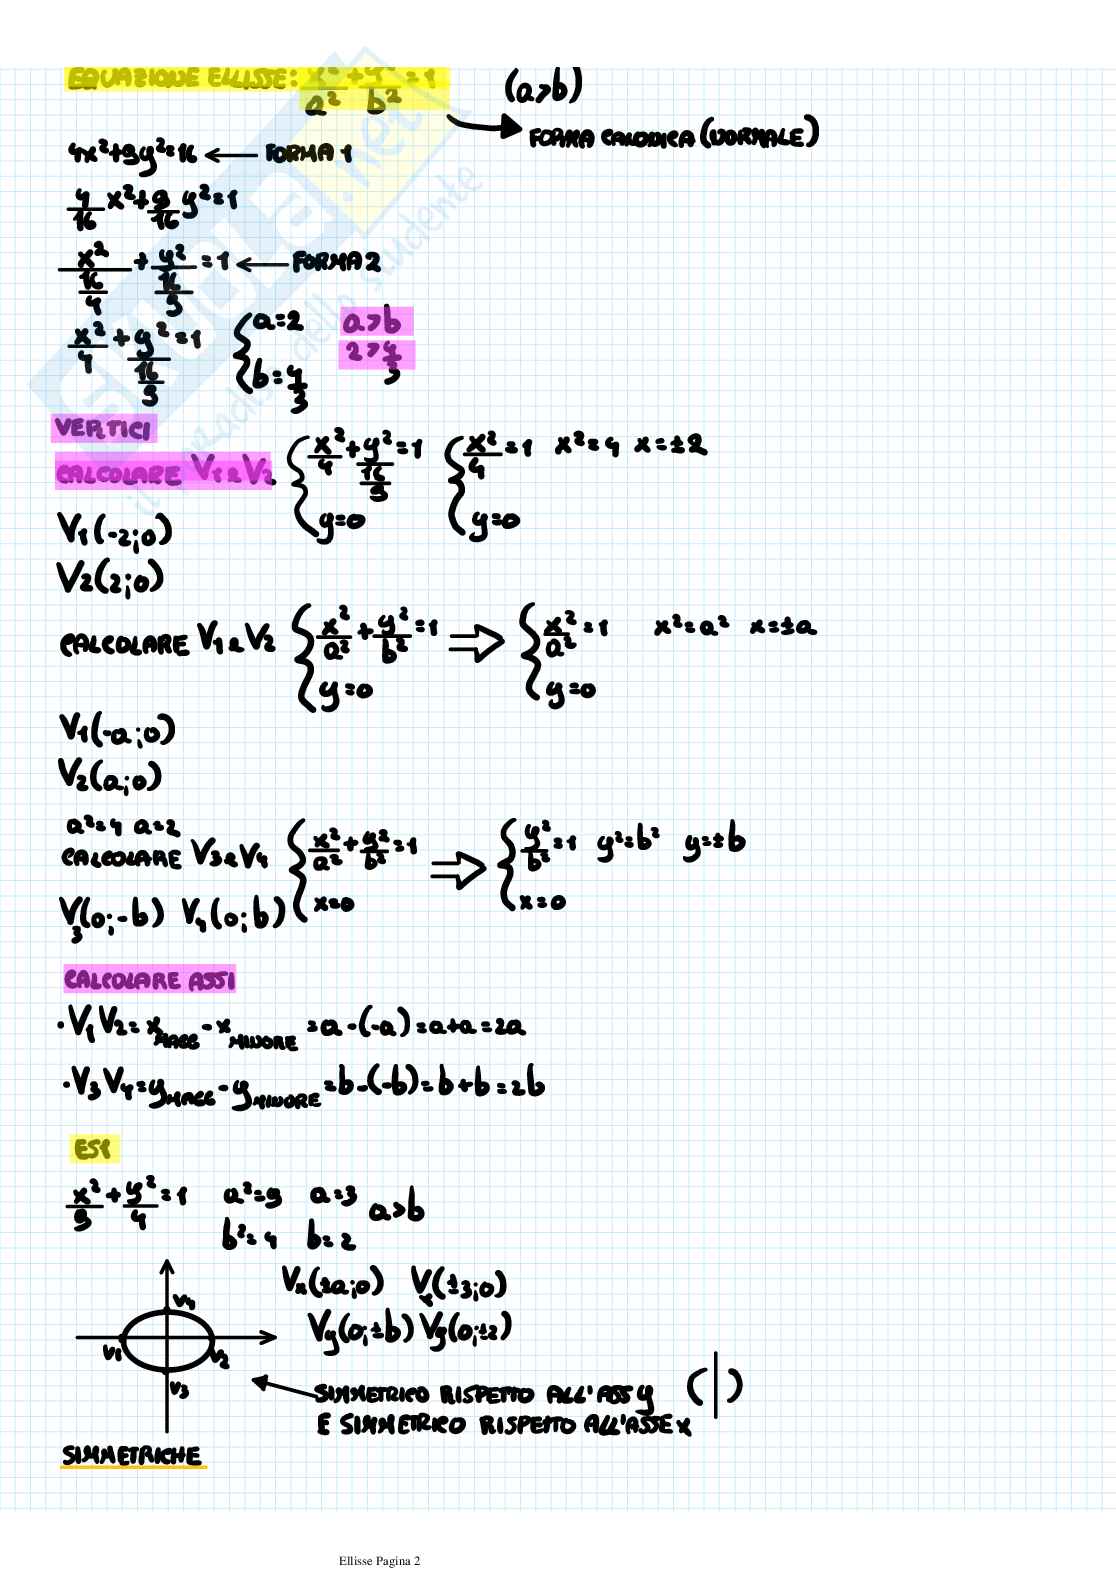 EQUAZIONE ELLISSE: x²/a² + y²/b² = 1 (a>b)
FORMA CANONICA (NORMALE)
4x²+9y²=16 ← FORMA 1
4/16 x² + 9/16 y² = 1
x²/(16/4) + y²/(16/9) = 1 ← FORMA 2
x²/4 + y²/(16/9) = 1 { a=2 a>b
b=4/3 2>4/3
VERTICI
CALCOLARE V1 e V2 { x²/4 + y²/(16/9) = 1 { x²/4 = 1 x²=4 x=±2
y=0 y=0
V1(-2;0)
V2(2;0)
CALCOLARE V1 e V2 { x²/a² + y²/b² = 1 ⇒ { x²/a² = 1 x²=a² x=±a
y=0 y=0
V1(-a;0)
V2(a;0)
a²=4 a=2
CALCOLARE V3 e V4 { x²/a² + y²/b² = 1 ⇒ { y²/b² = 1 y²=b² y=±b
x=0 x=0
V3(0;-b) V4(0;b)
CALCOLARE ASSI
·V1V2= x MAGG - x MINORE = a-(-a)=a+a=2a
·V3V4= y MAGG - y MINORE = b-(-b)=b+b=2b
ES1
x²/9 + y²/4 = 1 a²=9 a=3 a>b
b²=4 b=2
Vx(±a;0) Vx(±3;0)
V4
Vy(0;±b) Vy(0;±2)
V1 V2
V3
SIMMETRICO RISPETTO ALL'ASS y (|)
E SIMMETRICO RISPETTO ALL'ASSE x
SIMMETRICHE
Ellisse Pagina 2